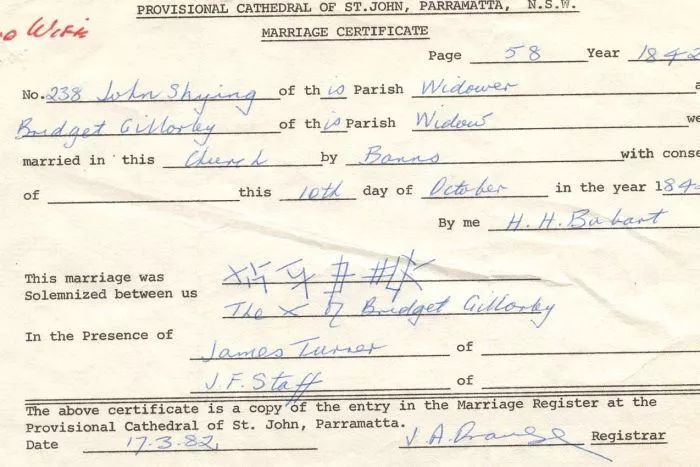 PROVISIONAL CATHEDRAL OF ST.JOHN, PARRAMATTA, N.S.W.
MARRIAGE CERTIFICATE
Wife
Page 58 Year 1842
No.238 John Shying of this Parish Widower
Bridget Gillorley of this Parish Widow we
married in this Church by Banns with conse
of this 10th day of October in the year 184
By me H. H. Bobart
This marriage was
Solemnized between us
The X of Bridget Gillorley
In the Presence of
James Turner of
J.F. Staff of
The above certificate is a copy of the entry in the Marriage Register at the
Provisional Cathedral of St. John, Parramatta.
Date 17.3.82, Registrar